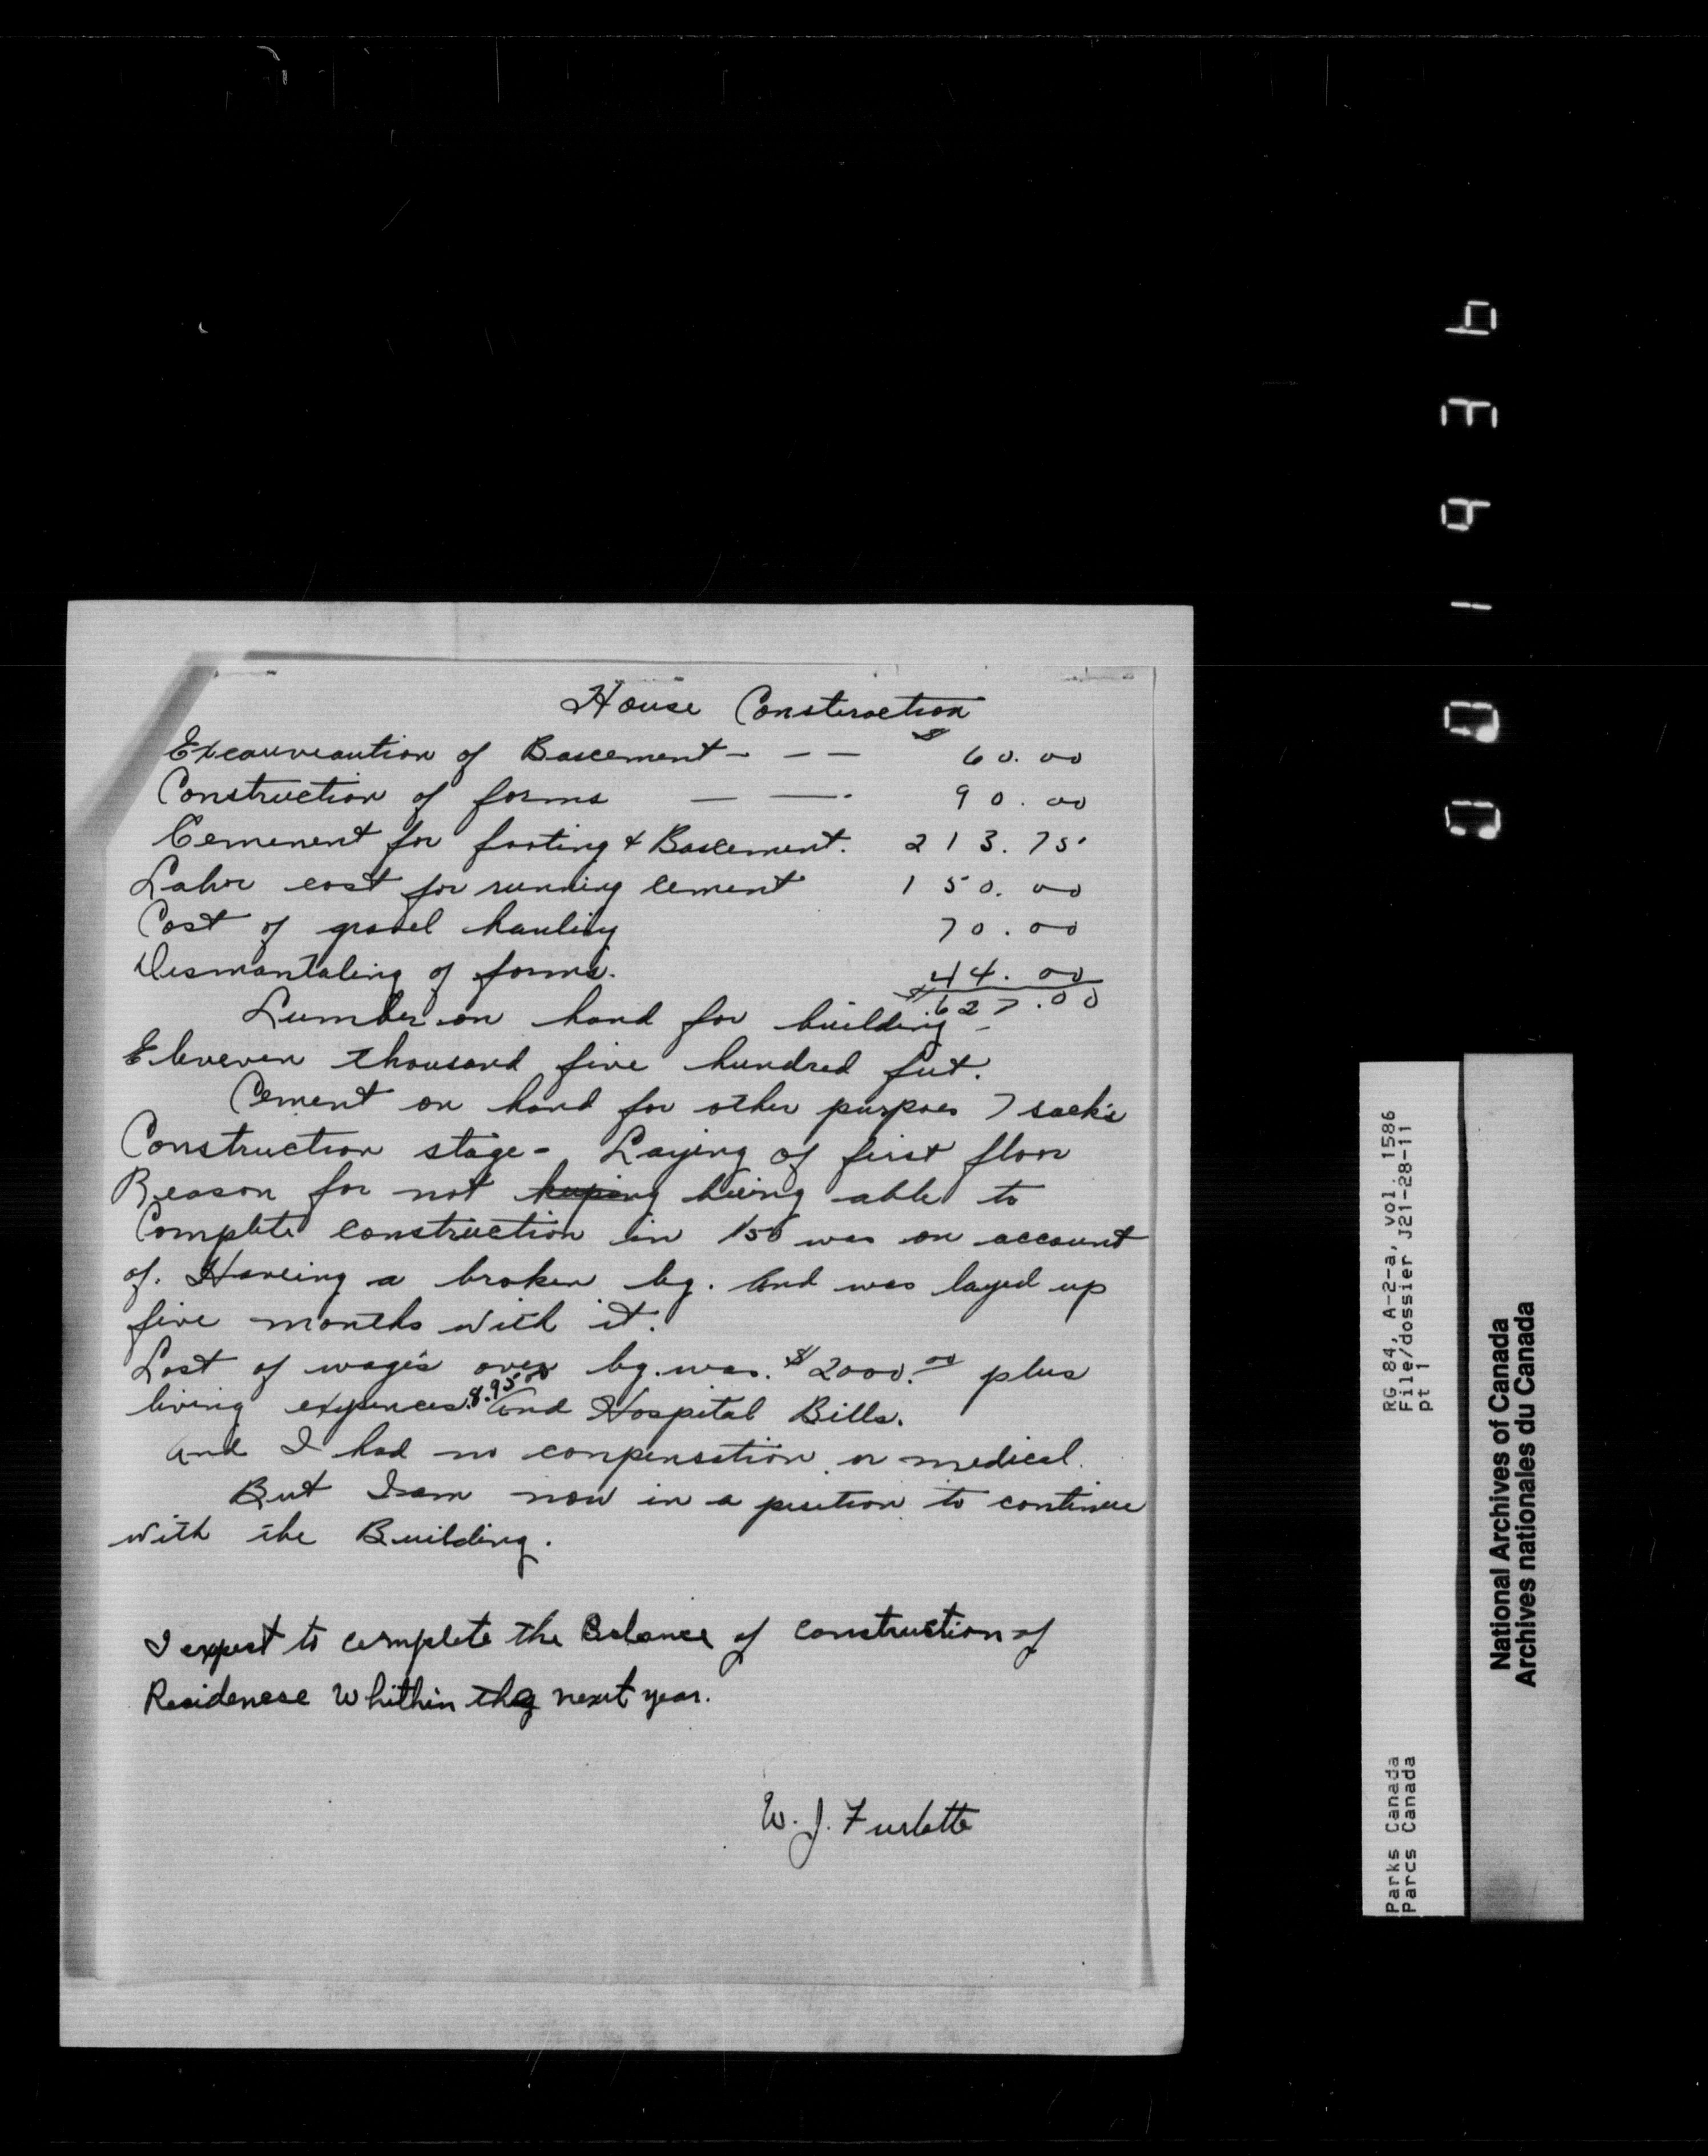 House Construction
Excauveaution of Bascement - - - $ 60.00
Construction of forms — — 90.00
Cemenent for footing & Bascement. 213.75
Labor cost for running cement 150.00
Cost of gravel hauling 70.00
Dismantaling of forms. 44.00
$627.00
Lumber on hand for building -
Eleveven thousand five hundred feet.
Cement on hand for other purpoes 7 sack's
Construction stage - Laying of first floor
Reason for not being able to
Complete construction in was on account
of. Haveing a broken leg. And was layed up
five months with it.
Lost of wage's over leg. was. $2000.00 plus
living expences. 8.95 and Hospital Bills.
And I had no compensation or medical.
But I am now in a position to continue
with the Building.
I expect to complete the Balance of construction of
Residenese Whithin the next year.
W. J. Furlotte
RG 84, A-2-a, vol. 1586
File/dossier J21-28-11
pt 1
Parks Canada
Parcs Canada
National Archives of Canada
Archives nationales du Canada